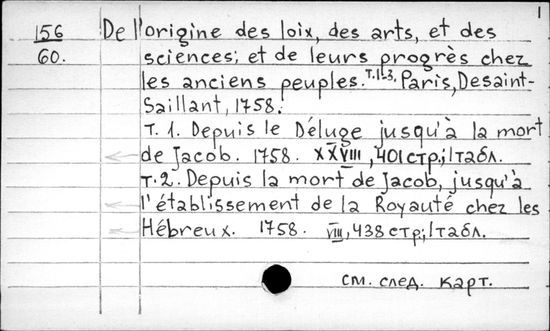 1
156 De l'origine des loix, des arts, et des
60. sciences; et de leurs progrès chez
les anciens peuples. т.1-3. Paris, Desaint-
Saillant, 1758.
т. 1. Depuis le Déluge jusqu'à la mort
de Jacob. 1758. XXVIII, 401 стр.; 1 табл.
т. 2. Depuis la mort de Jacob, jusqu'à
l'établissement de la Royauté chez les
Hébreux. 1758. VIII, 438 стр; 1 табл.
см. след. карт.